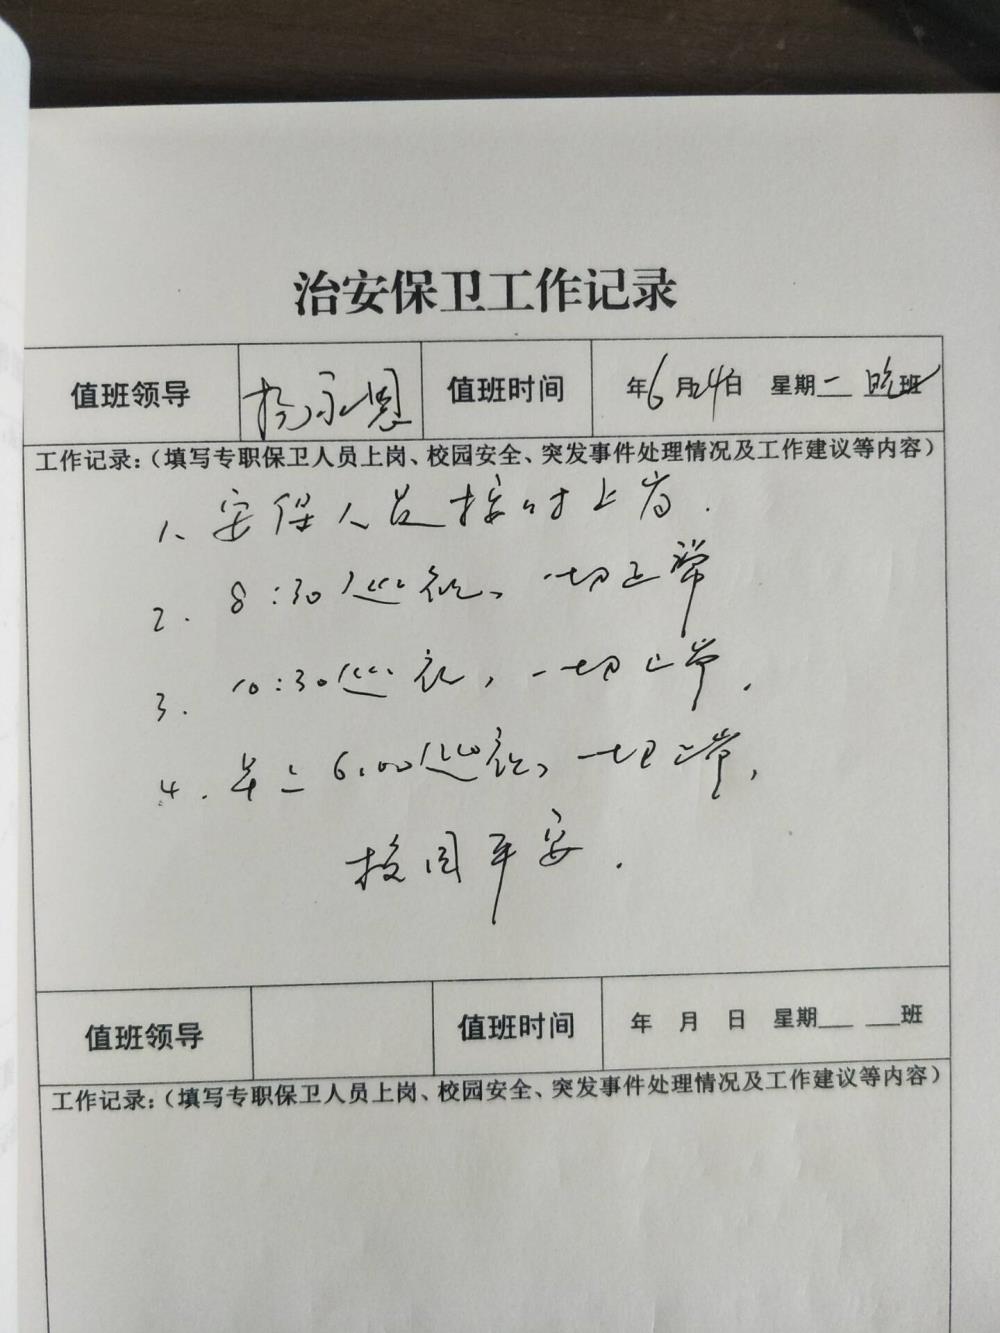 治安保卫工作记录
值班领导 杨永恩 值班时间 年6月24日 星期二 晚班
工作记录:(填写专职保卫人员上岗、校园安全、突发事件处理情况及工作建议等内容)
1、安保人员按时上岗.
2. 8:30巡视、一切正常
3. 10:30巡视,一切正常.
4. 早上6:00巡视、一切正常,
校园平安.
值班领导 值班时间 年 月 日 星期___ ___班
工作记录:(填写专职保卫人员上岗、校园安全、突发事件处理情况及工作建议等内容)